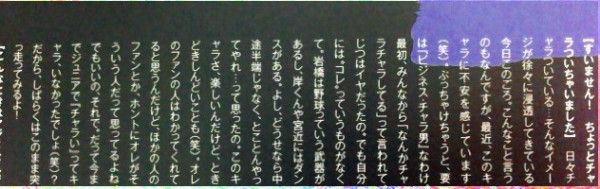 【すいません! ちょっとチャ
ラついちゃいました】日々チ
ャラついている…そんなイメー
ジが徐々に浸透してきている
今日このごろ。こんなこと言う
のもなんですが、最近、このキ
ャラに不安を感じています
(笑)。ぶっちゃけちゃうと、要
は“ビジネス・チャラ男”なわけ
最初、みんなから「なんかチャ
ラチャラしてる」って言われて
じつはイヤだったの。でも自分
には、“コレ”っていうものがなく
て、岩橋は野球っていう武器が
あるし、岸くんや宮近にはダン
スがある。よし、どうせなら中
途半端じゃなく、とことんやっ
てやれ…って思ったの。このキ
ャラさ、楽しいんだけど、とき
どきしんどいことも(笑)。オレ
のファンの人はわかってくれて
ると思うんだけど、ほかの人の
ファンとか、ホントにオレがそ
ういう人だって思ってるよね。
でもいいの。それで。だって今ま
でジュニアで“チャラい”ってキ
ャラ、いなかったでしょ(笑)?
だから、しばらくはこのまま突
っ走ってみるよ!